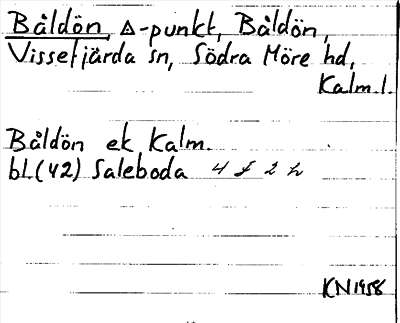 Båldön, Δ-punkt, Båldön,
Vissefjärda sn, Södra Möre hd,
Kalm. l.
Båldön ek Kalm.
bl. (42) Saleboda 4 f 2 h
KN 1958